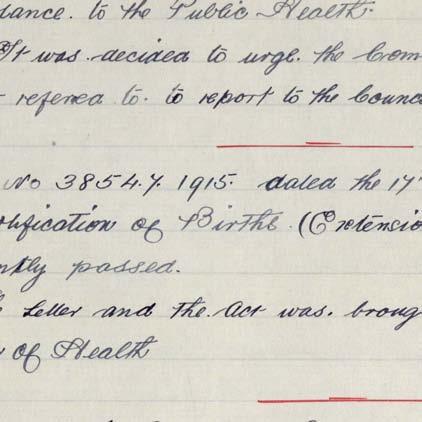 dance. to the Public Health.
It was decided to urge. the Com
referred to. to report to the Counc
No 38547. 1915. dated the 17
otification of Births. (Extensio
ntly passed.
Letter and the. Act was. broug
of Health